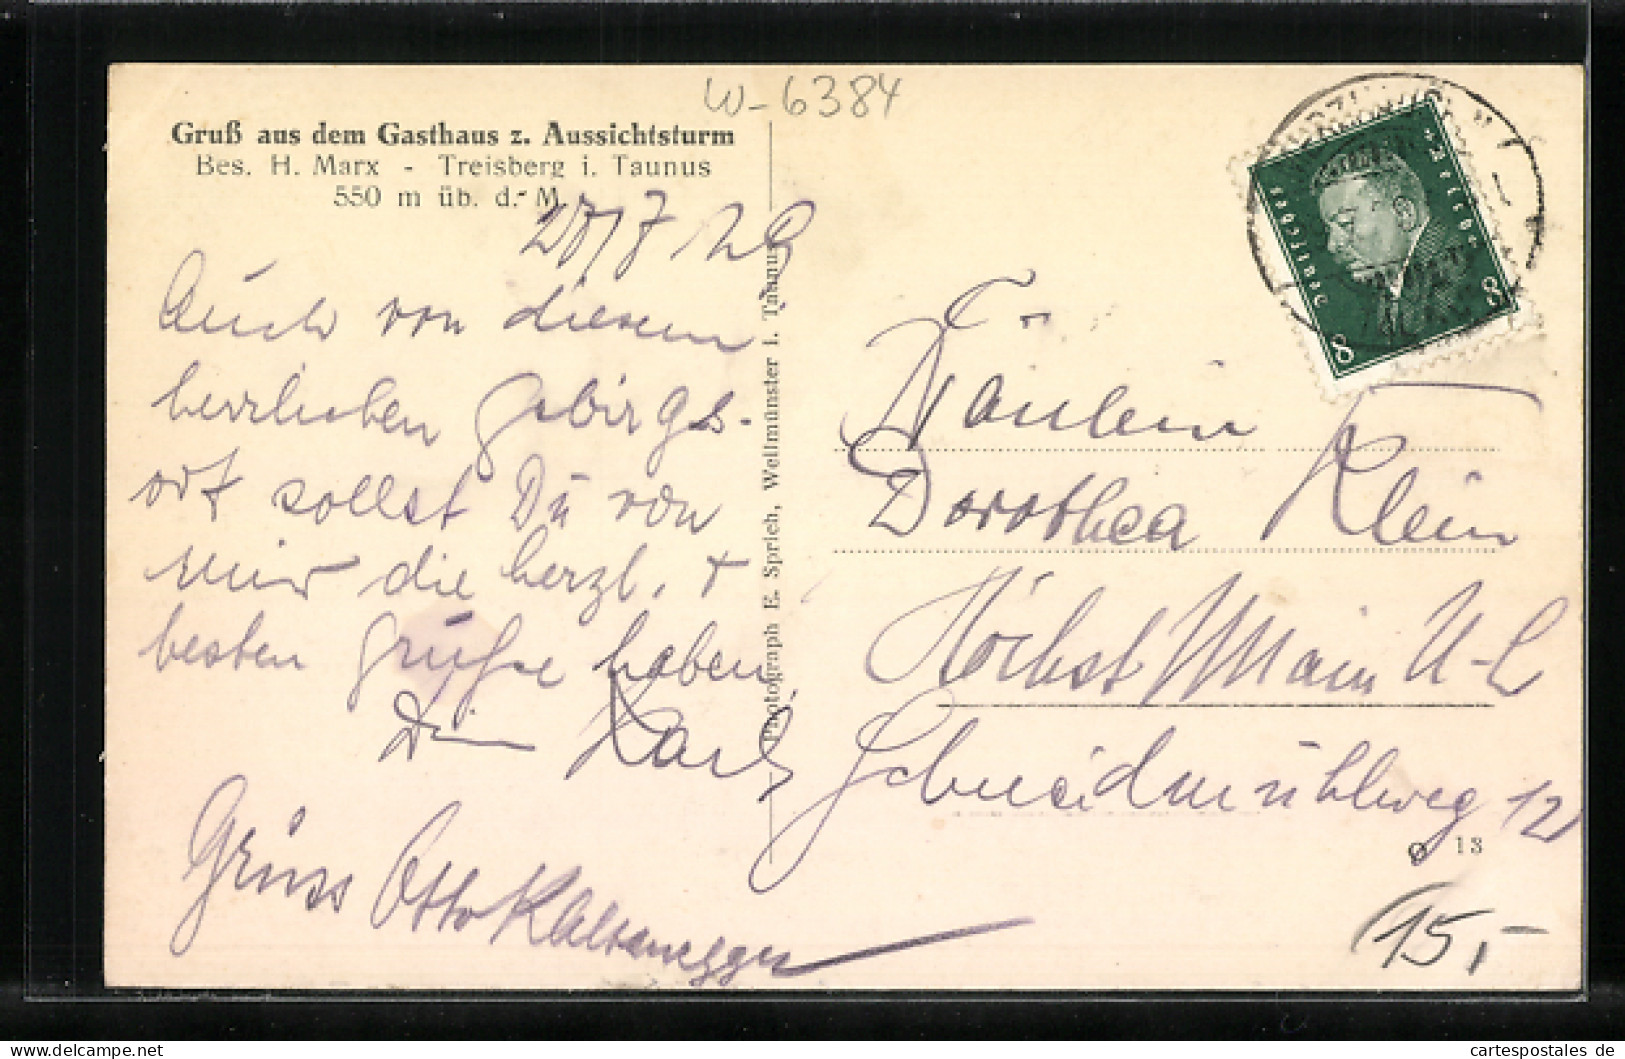 W-6384
Gruß aus dem Gasthaus z. Aussichtsturm
Bes. H. Marx - Treisberg i. Taunus
550 m üb. d. M.
28/7 29
Auch von diesem
herrlichen Gebirgs-
ort sollst Du von
mir die herzl. +
besten Grüße haben
Dein Karl
Grüss Otto Kaltenegger
Photograph E. Sprich, Weilmünster i. Taunus
8 8
Fräulein
Dorothea Klein
Höchst/Main U-L
Schneidmühlweg 12
13
15,-
delcampe.net
cartespostales de